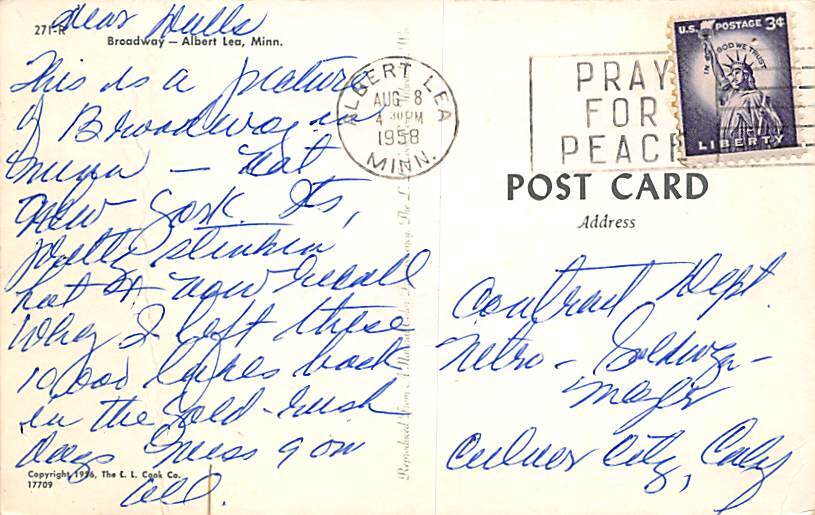 Dear Dulls
271-R
Broadway — Albert Lea, Minn.
This is a picture
of Broadway in
Minn — Not
New York. Its,
pretty stinkin
hot & now recall
Why I left these
10,000 lakes back
in the Gold-rush
days Miss you
all.
Copyright 1956, The E. L. Cook Co.
17709
Reproduced from A
ALBERT LEA
AUG 8
4 30 PM
1958
MINN.
PRAY
FOR
PEACE
U.S. POSTAGE 3¢
IN GOD WE TRUST
LIBERTY
POST CARD
Address
Contract Dept.
Metro - Goldwyn -
Mayer
Culver City, Caly